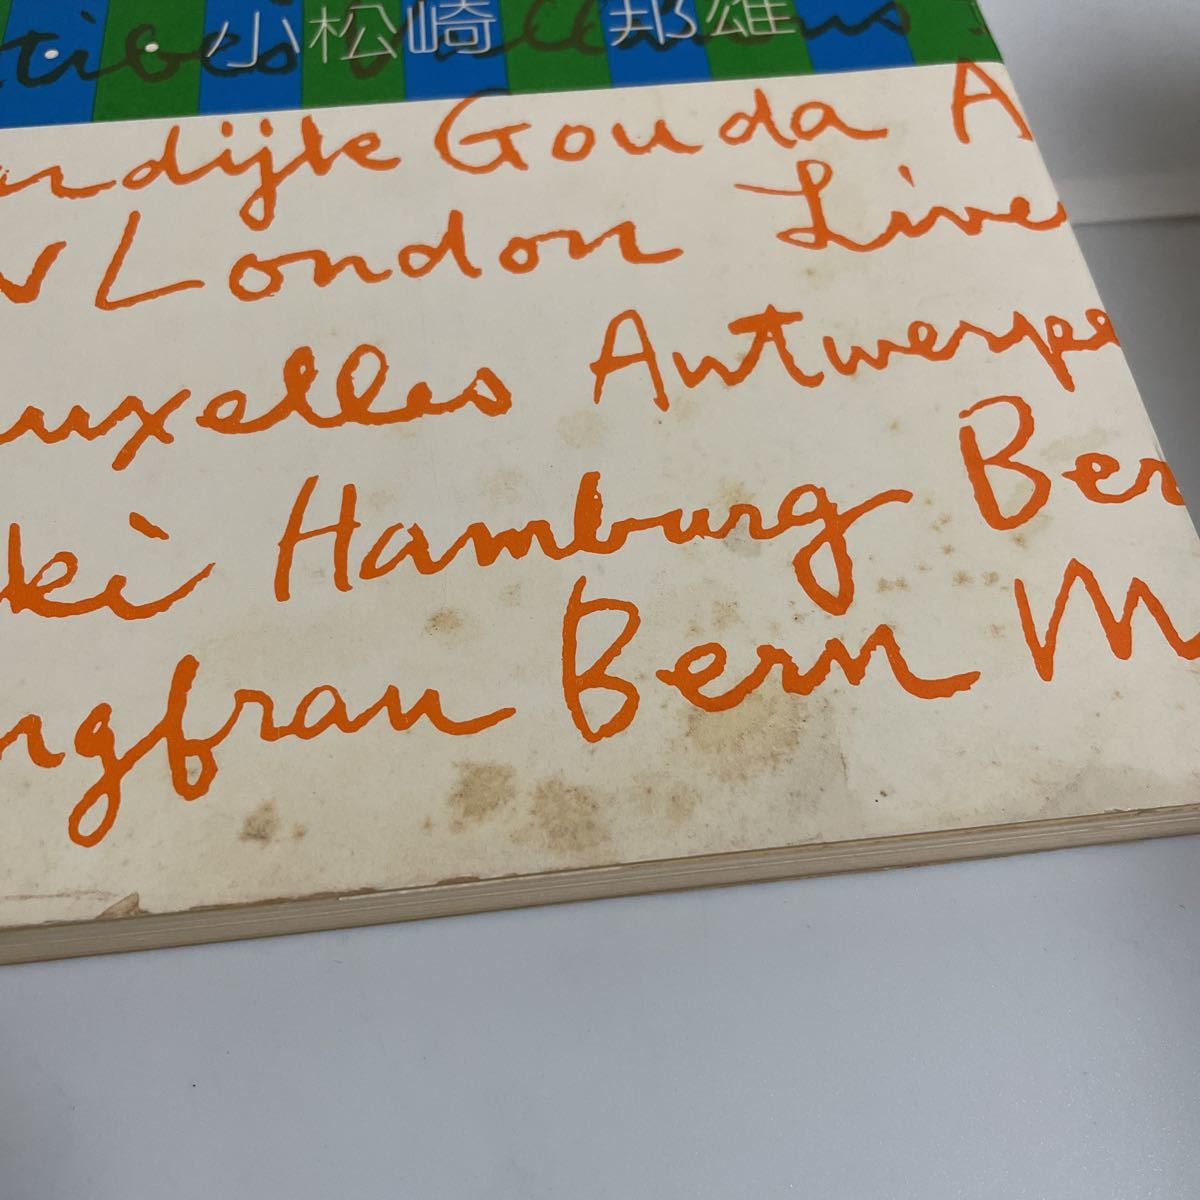 小松崎 邦雄
Gouda A
London Live
uxelles Antwerpe
ki Hamburg Ber
ngfrau Bern M